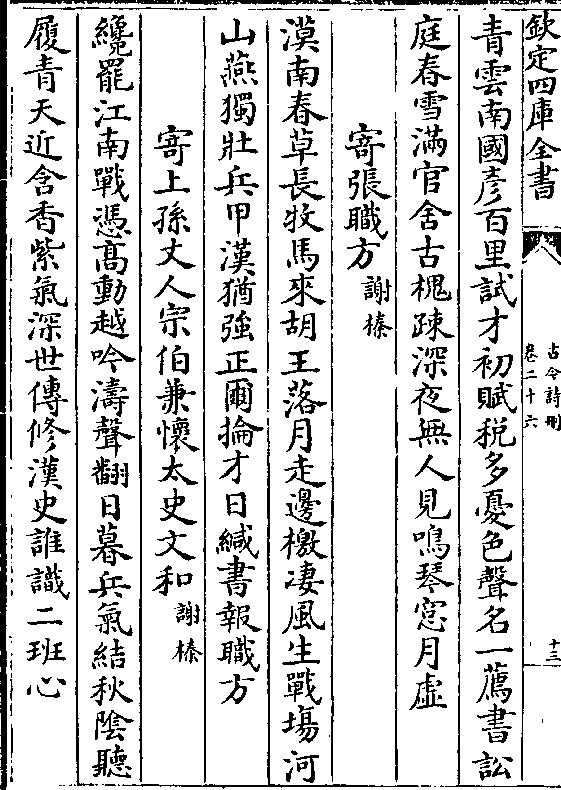 欽定四庫全書
古今詩刪
卷二十六
十三
青雲南國彥百里試才初賦稅多憂色聲名一薦書訟
庭春雪滿官舍古槐疎深夜無人見鳴琴窓月虛
寄張職方 謝榛
漠南春草長牧馬來胡王落月走邊檄凄風生戰塲河
山燕獨壯兵甲漢猶強正爾掄才日緘書報職方
寄上孫丈人宗伯兼懷太史文和 謝榛
纔罷江南戰憑髙動越吟濤聲翻日暮兵氣結秋陰聽
履青天近含香紫氣深世傳修漢史誰識二班心